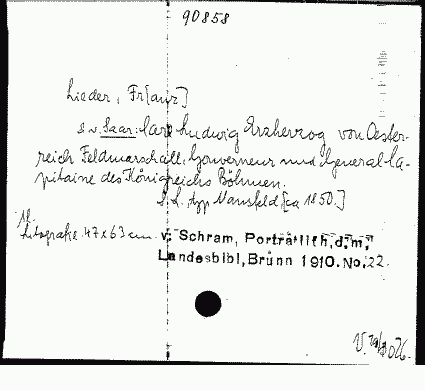 90858
Lieder, Fr[anz]
S. v. Saar: Carl Ludwig Erzherzog von Oester-
reich Feldmarschall, Gouverneur und General-Ca-
pitaine des Königreichs Böhmen.
S. l. typ Mansfeld [ca 1850.]
1 l.
Litografie 47 x 63 cm.
v. Schram, Porträtlith, d. m,
Landesbibl, Brünn 1910. No, 22.